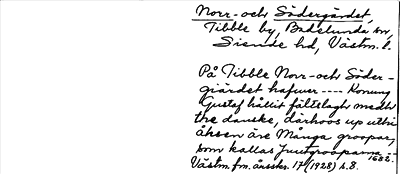 Norr- och Södergärdet,
Tibble by, Badelunda sn,
Siende hd, Västm. l.
På Tibble Norr- och Söder-
giärdet hafuer ---- Konung
Gustaf hållit fältslagh medh
the danske, därhoos up uthi
åhsen äre Många groopar,
som kallas Juutgrooparna --
1682.
Västm. fm. årsskr. 17 (1928) s. 8.